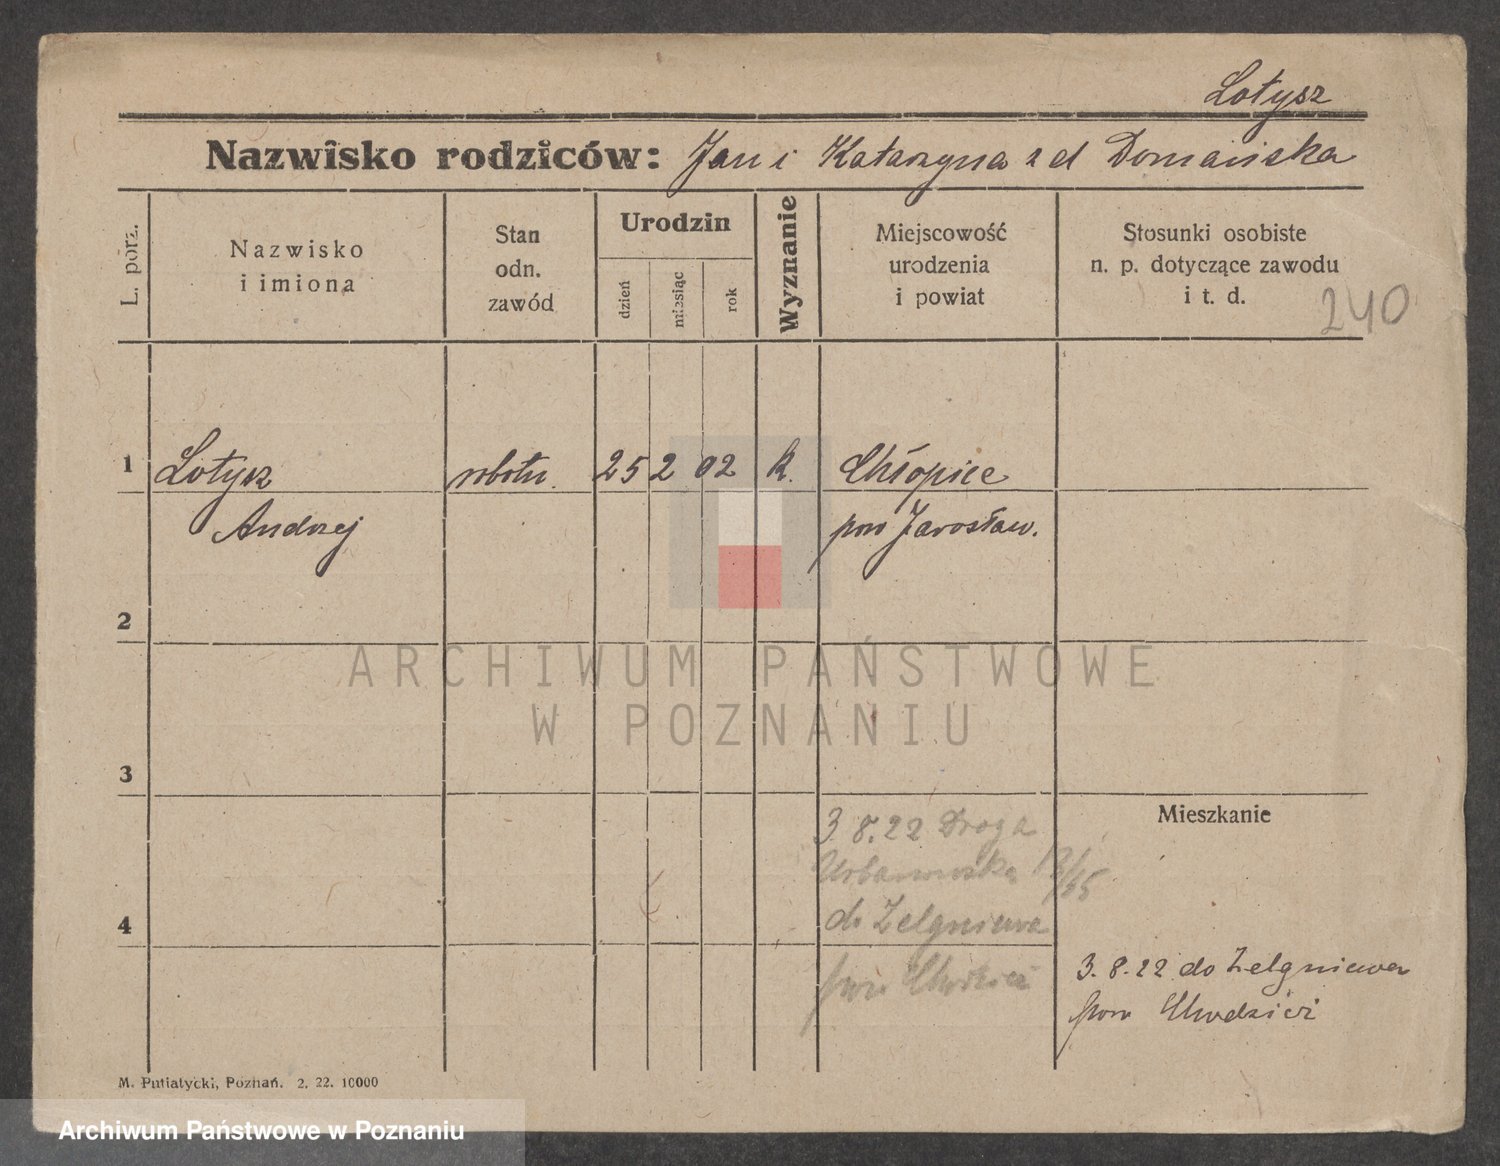 Łotysz
Nazwisko rodziców: Jan i Katarzyna z d Domańska
L. porz.
Nazwisko
i imiona
Stan
odn.
zawód
Urodzin
dzień
miesiąc
rok
Wyznanie
Miejscowość
urodzenia
i powiat
Stosunki osobiste
n. p. dotyczące zawodu
i t. d.
240
1 Łotysz robotn. 25 2 02 k. Chłopice
Andrzej pow Jarosław.
2
ARCHIWUM PAŃSTWOWE
W POZNANIU
3
Mieszkanie
3. 8. 22 Droga
Urbanowska
do Zelgniewa
4
pow Chodzież
3. 8. 22 do Zelgniewa
pow Chodzież
M. Putiatycki, Poznań. 2. 22. 10000
Archiwum Państwowe w Poznaniu